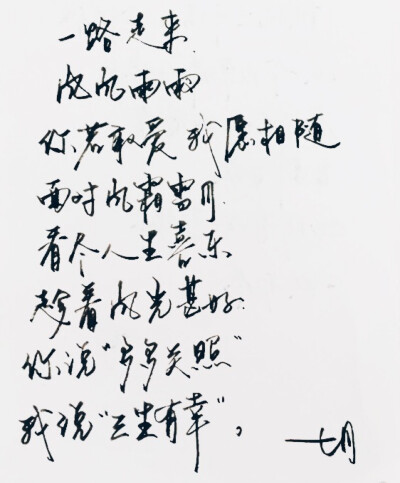 一路走来
风风雨雨
你若敢爱 我愿相随
面对风霜雪月
看尽人生喜乐
趁着风光甚好
你说“多多关照”
我说“三生有幸”。
——七月